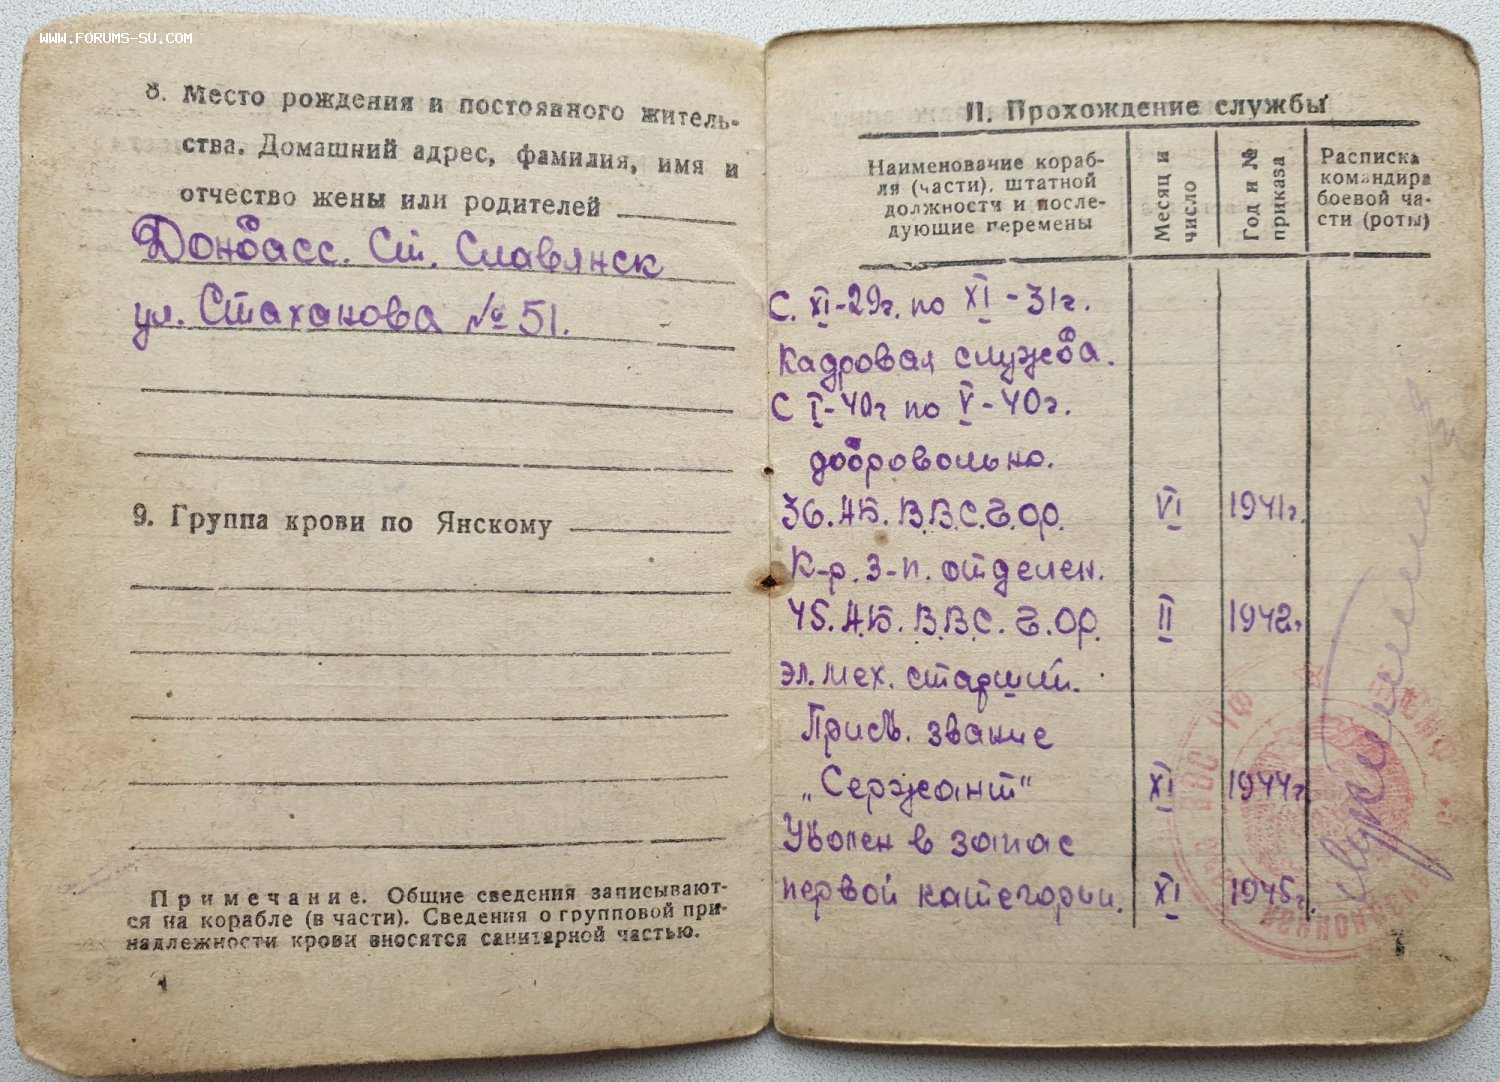 WWW.FORUMS-SU.COM
8. Место рождения и постоянного житель-
ства. Домашний адрес, фамилия, имя и
отчество жены или родителей
Донбасс. Ст. Славянск
ул. Стаханова № 51.
9. Группа крови по Янскому
Примечание. Общие сведения записывают-
ся на корабле (в части). Сведения о групповой при-
надлежности крови вносятся санитарной частью.
II. Прохождение службы
Наименование кораб-
ля (части), штатной
должности и после-
дующие перемены
Месяц и
число
Год и №
приказа
Расписка
командира
боевой ча-
сти (роты)
С. XI-29г. по XI-31г.
Кадровая служба.
С I-40г по V-40г.
добровольно.
36. АБ. В.В.С.Б.ор. VI 1941г.
К-р. З-п. отделен.
45. А.Б. В.В.С. Б.ор. II 1942г.
эл. мех. старший.
Присв. звание
„Сержант" XI 1944г.
Уволен в запас
первой категории. XI 1945г.
ВВС ЧФ ВМФ